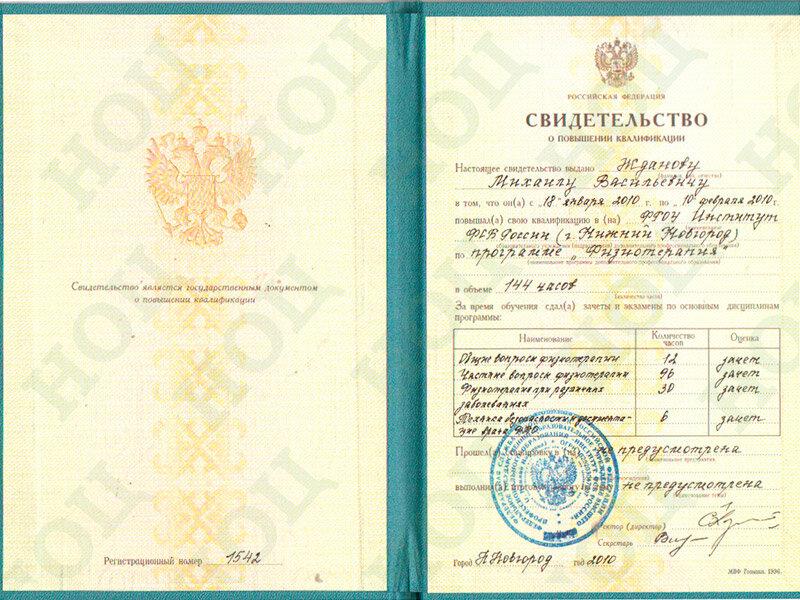 Свидетельство является государственным документом
о повышении квалификации
Регистрационный номер 1542
РОССИЙСКАЯ ФЕДЕРАЦИЯ
СВИДЕТЕЛЬСТВО
О ПОВЫШЕНИИ КВАЛИФИКАЦИИ
Настоящее свидетельство выдано Жданову
Михаилу Васильевичу
в том, что он(а) с „18" января 2010 г. по „10" февраля 2010 г.
повышал(а) свою квалификацию в (на) ФГОУ Институт
ФСБ России (г. Нижний Новгород)
по программе „Физиотерапия"
в объеме 144 часов
(количество часов)
За время обучения сдал(а) зачеты и экзамены по основным дисциплинам
программы:
Наименование Количество часов Оценка
Общие вопросы физиотерапии 12 зачет
Частные вопросы физиотерапии 96 зачет
Физиотерапия при различных 30 зачет
заболеваниях
Техника безопасности и документа- 6 зачет
ция врача ФТО
Прошел(а) стажировку в (на) не предусмотрена
выполнил(а) итоговую работу на тему не предусмотрена
Ректор (директор)
Секретарь
Город Н.Новгород год 2010
НОЦ